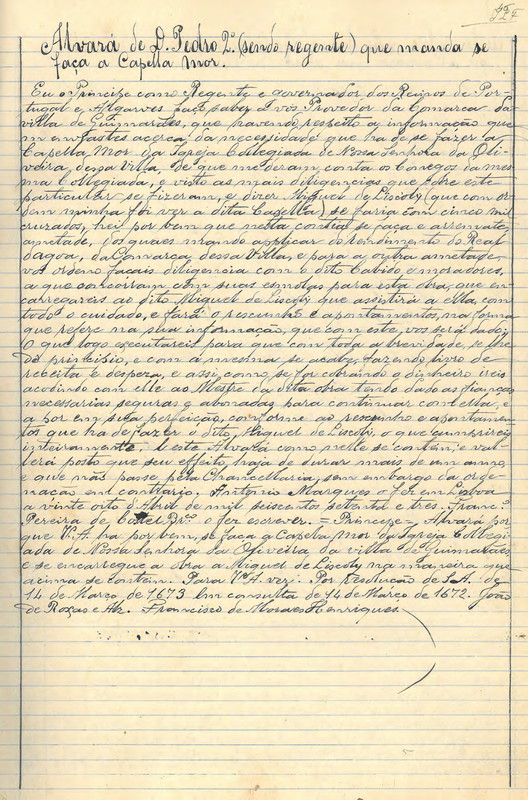 Alvará de D. Pedro 2.º (sendo regente) que manda se
faça a Capella Mor.
Eu o Principe como Regente e governador dos Reinos de Por-
tugal e Algarves faço saber a vós Provedor da Comarca da
villa de Guimarães, que havendo respeito a informação que
m'enviastes acerca da necessidade que ha de se fazer a
Capella Mor da Igreja Collegiada de Nossa Senhora da Oli-
veira, dessa Villa, de que me deram conta os Conegos da mes-
ma Collegiada, e visto as mais diligencias que sobre este
particular se fizeram, e dizer Miguel de Liscoly (que com or-
dem minha foi ver a dita Capella) se faria com cinco mil
cruzados, hei por bem que nesta contia se faça e arremate,
ametade, dos quaes mando applicar do rendimento do Real
dagoa, da Comarca dessa Villa, e para a outra ametade,
vos ordeno façais diligencia com o dito Cabido e moradores,
a que concorram com suas esmolas para esta obra, que en-
carregareis ao dito Miguel de Liscoly que assistirá a ella, com
todo o cuidado, e fará o rescunho e apontamentos, na forma
que refere na sua informação, que com este, vos será dado;
O que logo executareis para que com toda a brevidade, se lhe
dê principio, e com a mesma se acabe, fazendo livro de
receita e despeza, e assi, como se for cobrando o dinheiro ireis
acodindo com elle ao Mestre da dita obra tendo dado as fianças
necessarias seguras e abonadas para continuar com ella, e
a por em sua perfeição, conforme ao rescunho e apontamen-
tos que ha de fazer o dito Miguel de Liscoly, o que cumprireis
inteiramente. E este Alvará como nelle se contém e val-
lerá posto que seu effeito haja de durar mais de um anno,
e que não passe pela Chancellaria, sem embargo da orde-
nação em contrario. Antonio Marques o fez em Lisboa
a vinte oito d'Abril de mil seiscentos setenta e tres. Franc.º
Pereira de Br.º o fez escrever. = Principe = Alvará por
que V. A. ha por bem, se faça a Capella Mor da Igreja Collegi-
ada de Nossa Senhora da Oliveira da villa de Guimarães
e se encarregue a obra a Miguel de Liscoly na maneira que
acima se contem. Para V. A. ver. Por resolução de S. A. de
14 de Março de 1673 Em consulta de 14 de Março de 1672. João
de Roxas e Az. Francisco de Moraes Henriques